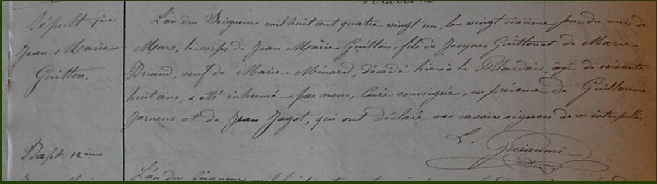 Sépult
Jean Marie
Guitton.
L'an du Seigneur mil huit cent quatre vingt un, le vingt sixième jour du mois de
Mars, le corps de Jean Marie Guitton, fils de Jacques Guitton et de Marie
Briand, veuf de Marie Menard, décédé hier à la agé de soixante
huit ans, a été inhumé par nous, Curé soussigné, en présence de Guillaume
et de Jean Jagot, qui ont déclaré ne savoir signer de ce interpellés.
L.
Bapt 12ème
L'an du Seigneur mil huit cent